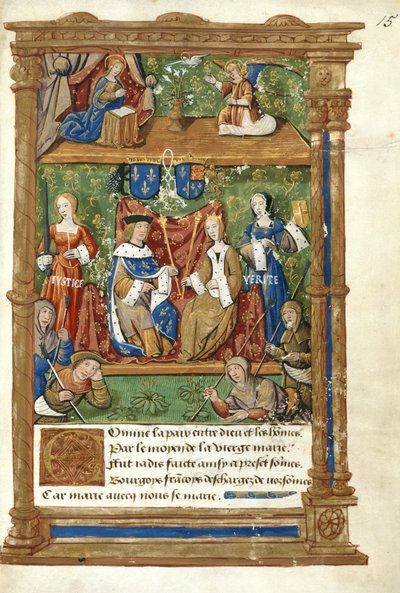 15
IUSTICE
VERITE
Comme la paix entre dieu et les hões
Par le moyen de la vierge marie
Fut iadis faicte ainsy a preset sõmes
Bourgoys francoys deschargez de noz sõmes
Car marie avecq nous se marie